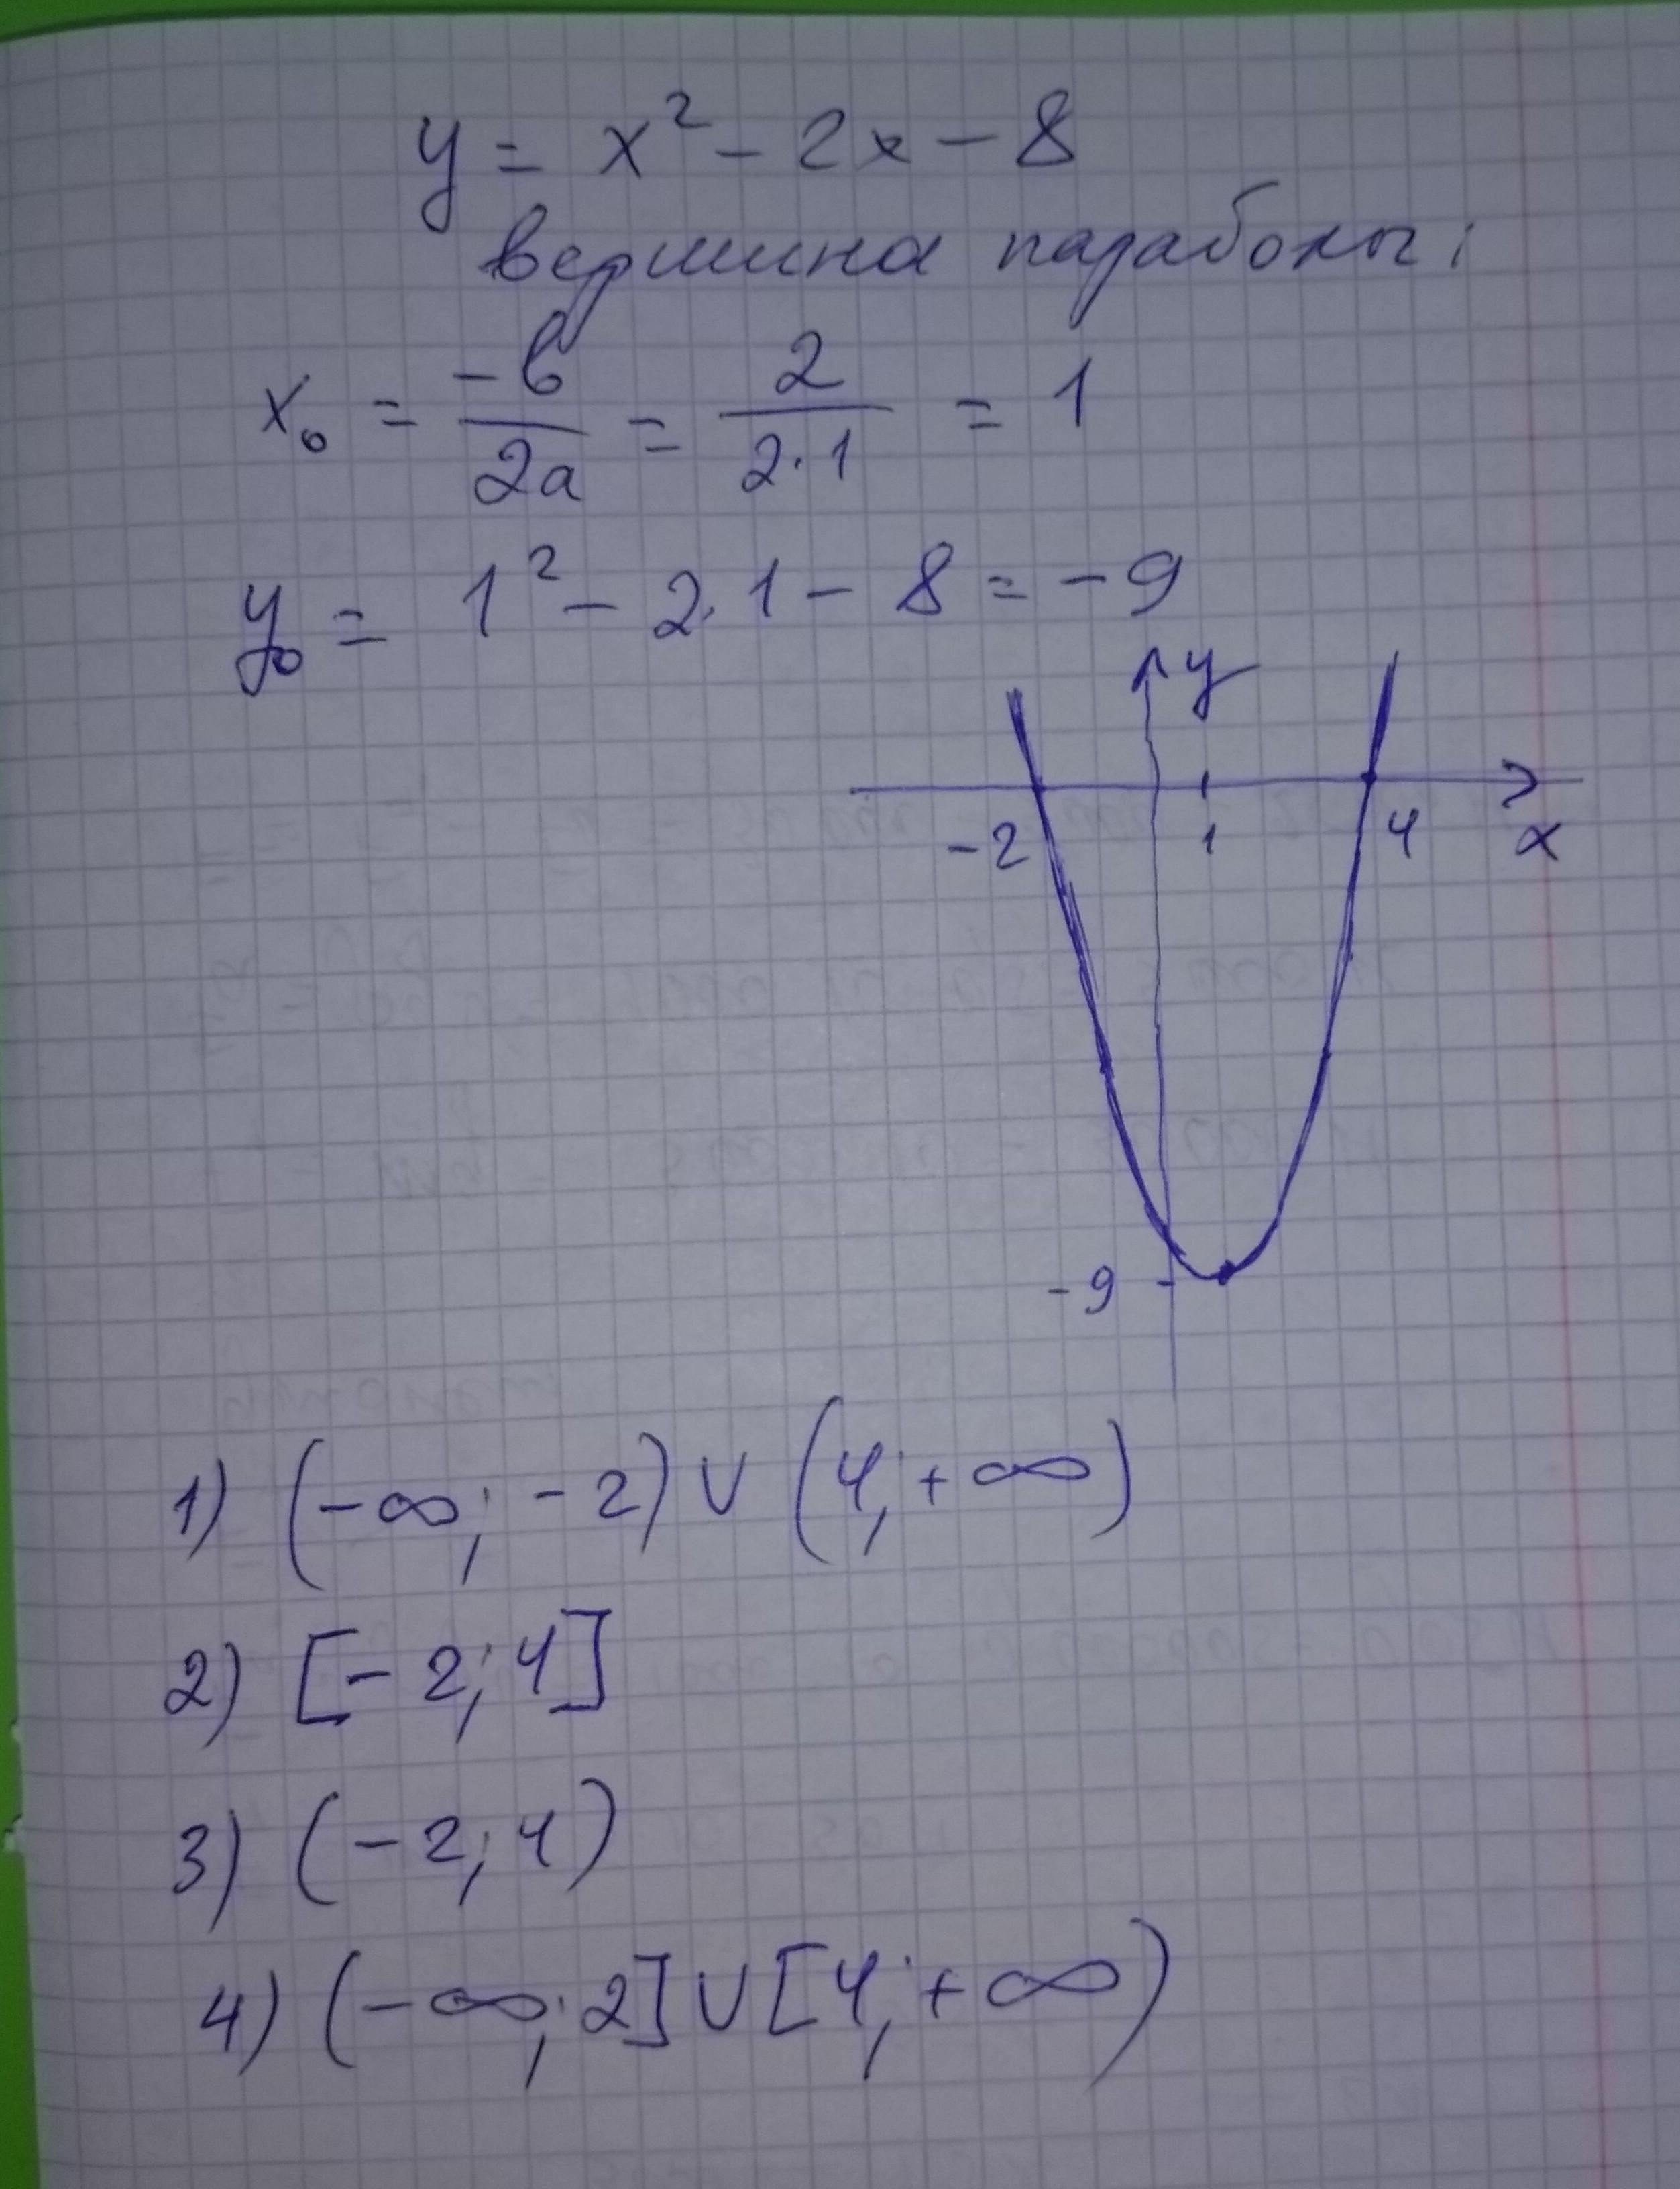 y = x² - 2x - 8
вершина параболы:
x₀ = -b/2a = 2/2·1 = 1
y₀ = 1² - 2·1 - 8 = -9
y
-2 1 4 x
-9
1) (-∞; -2) ∪ (4; +∞)
2) [-2; 4]
3) (-2; 4)
4) (-∞; 2] ∪ [4; +∞)